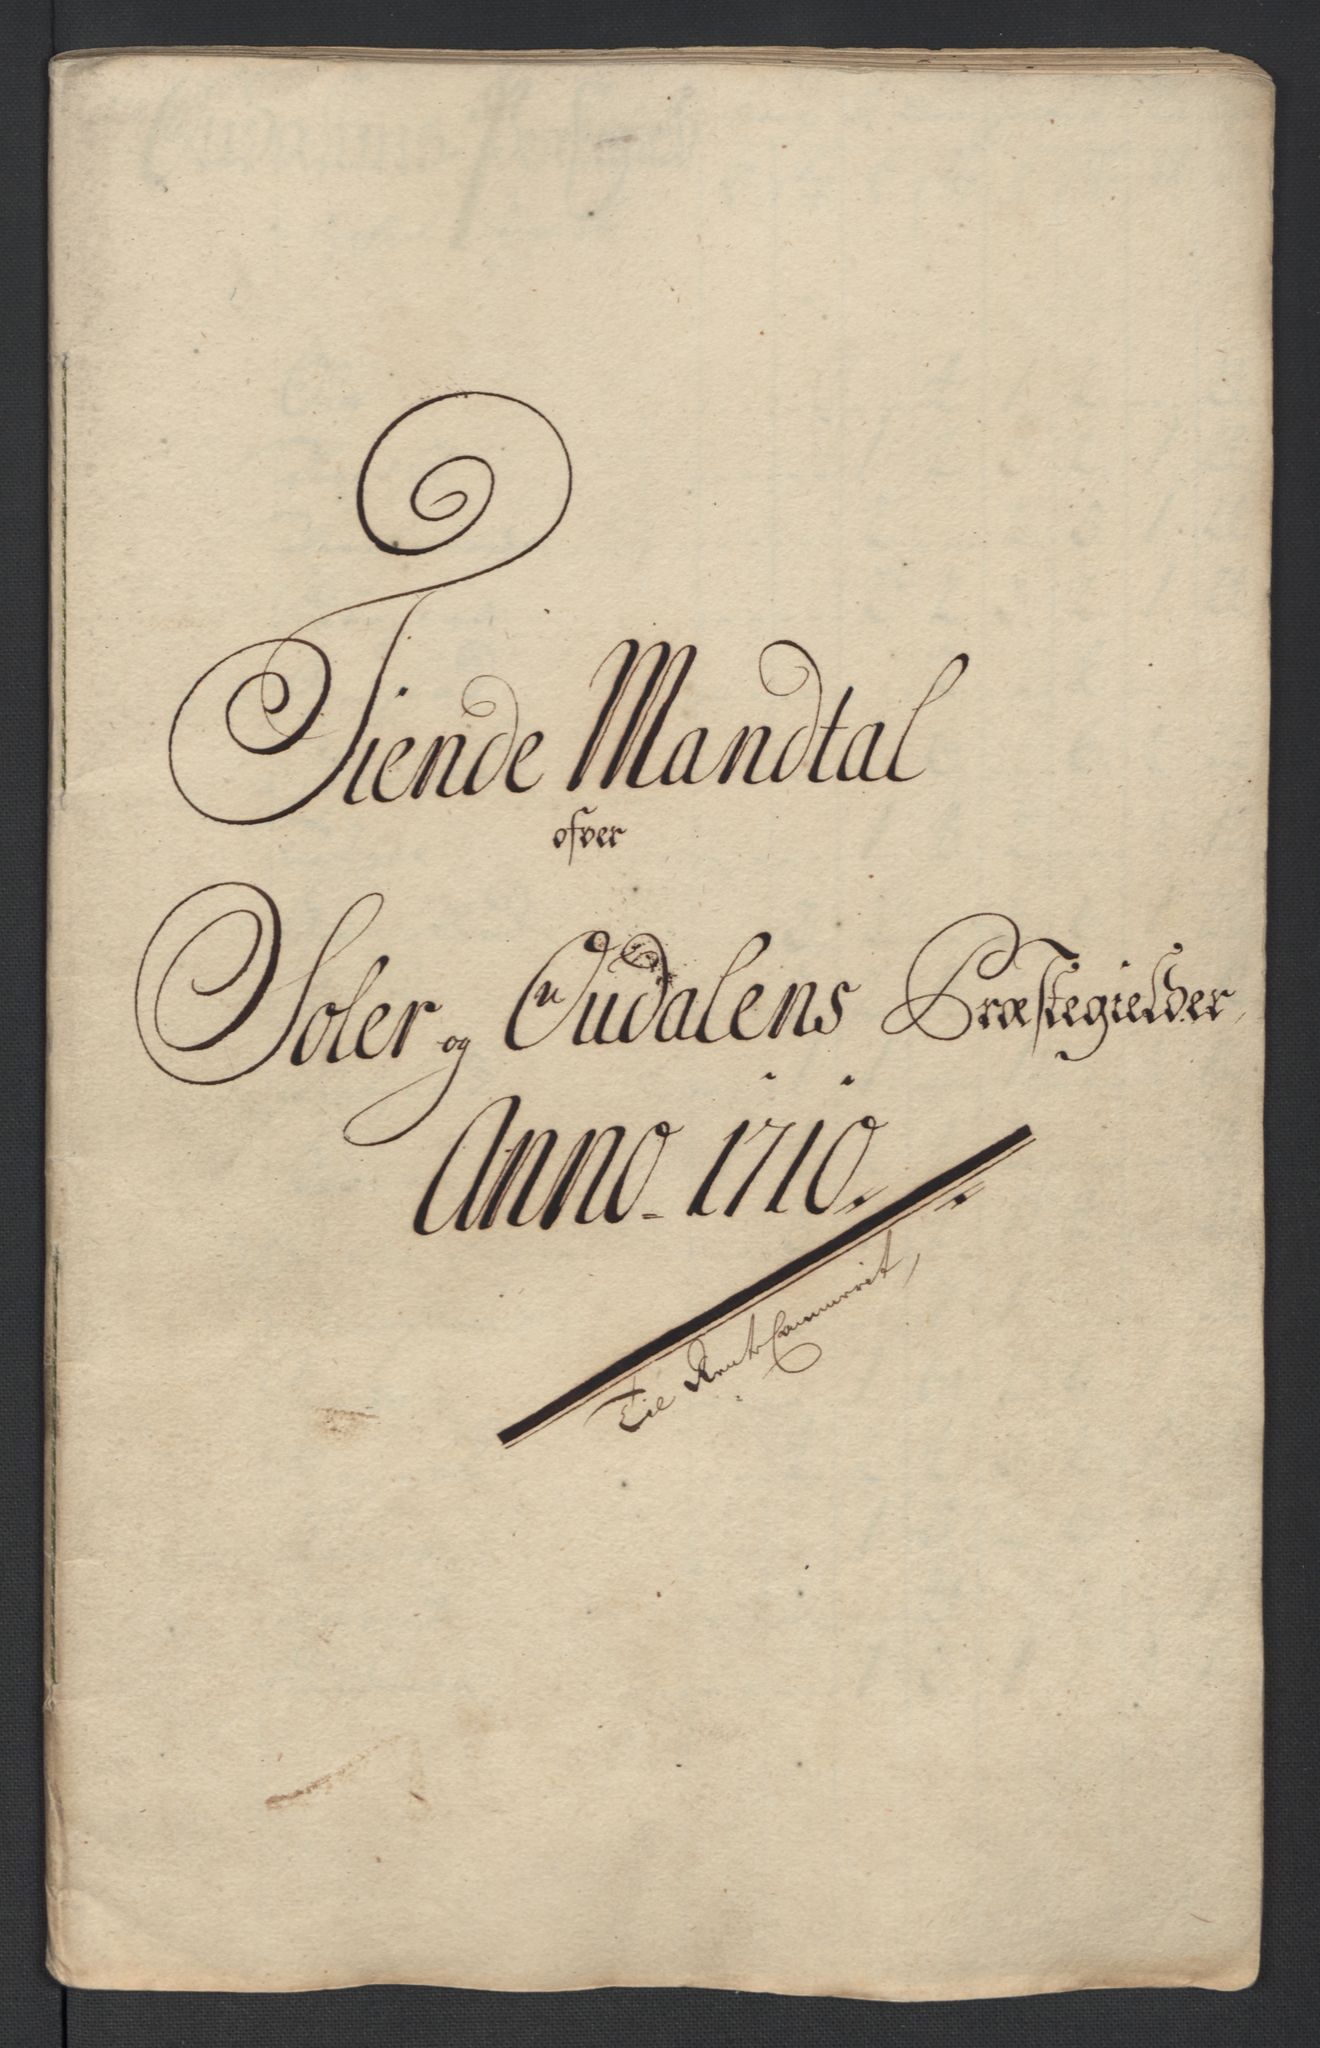 Tiende Mandtal
ofver
Soler og Oudalens Præstegielder,
Anno. 1710.
Til Rente Cammerit,